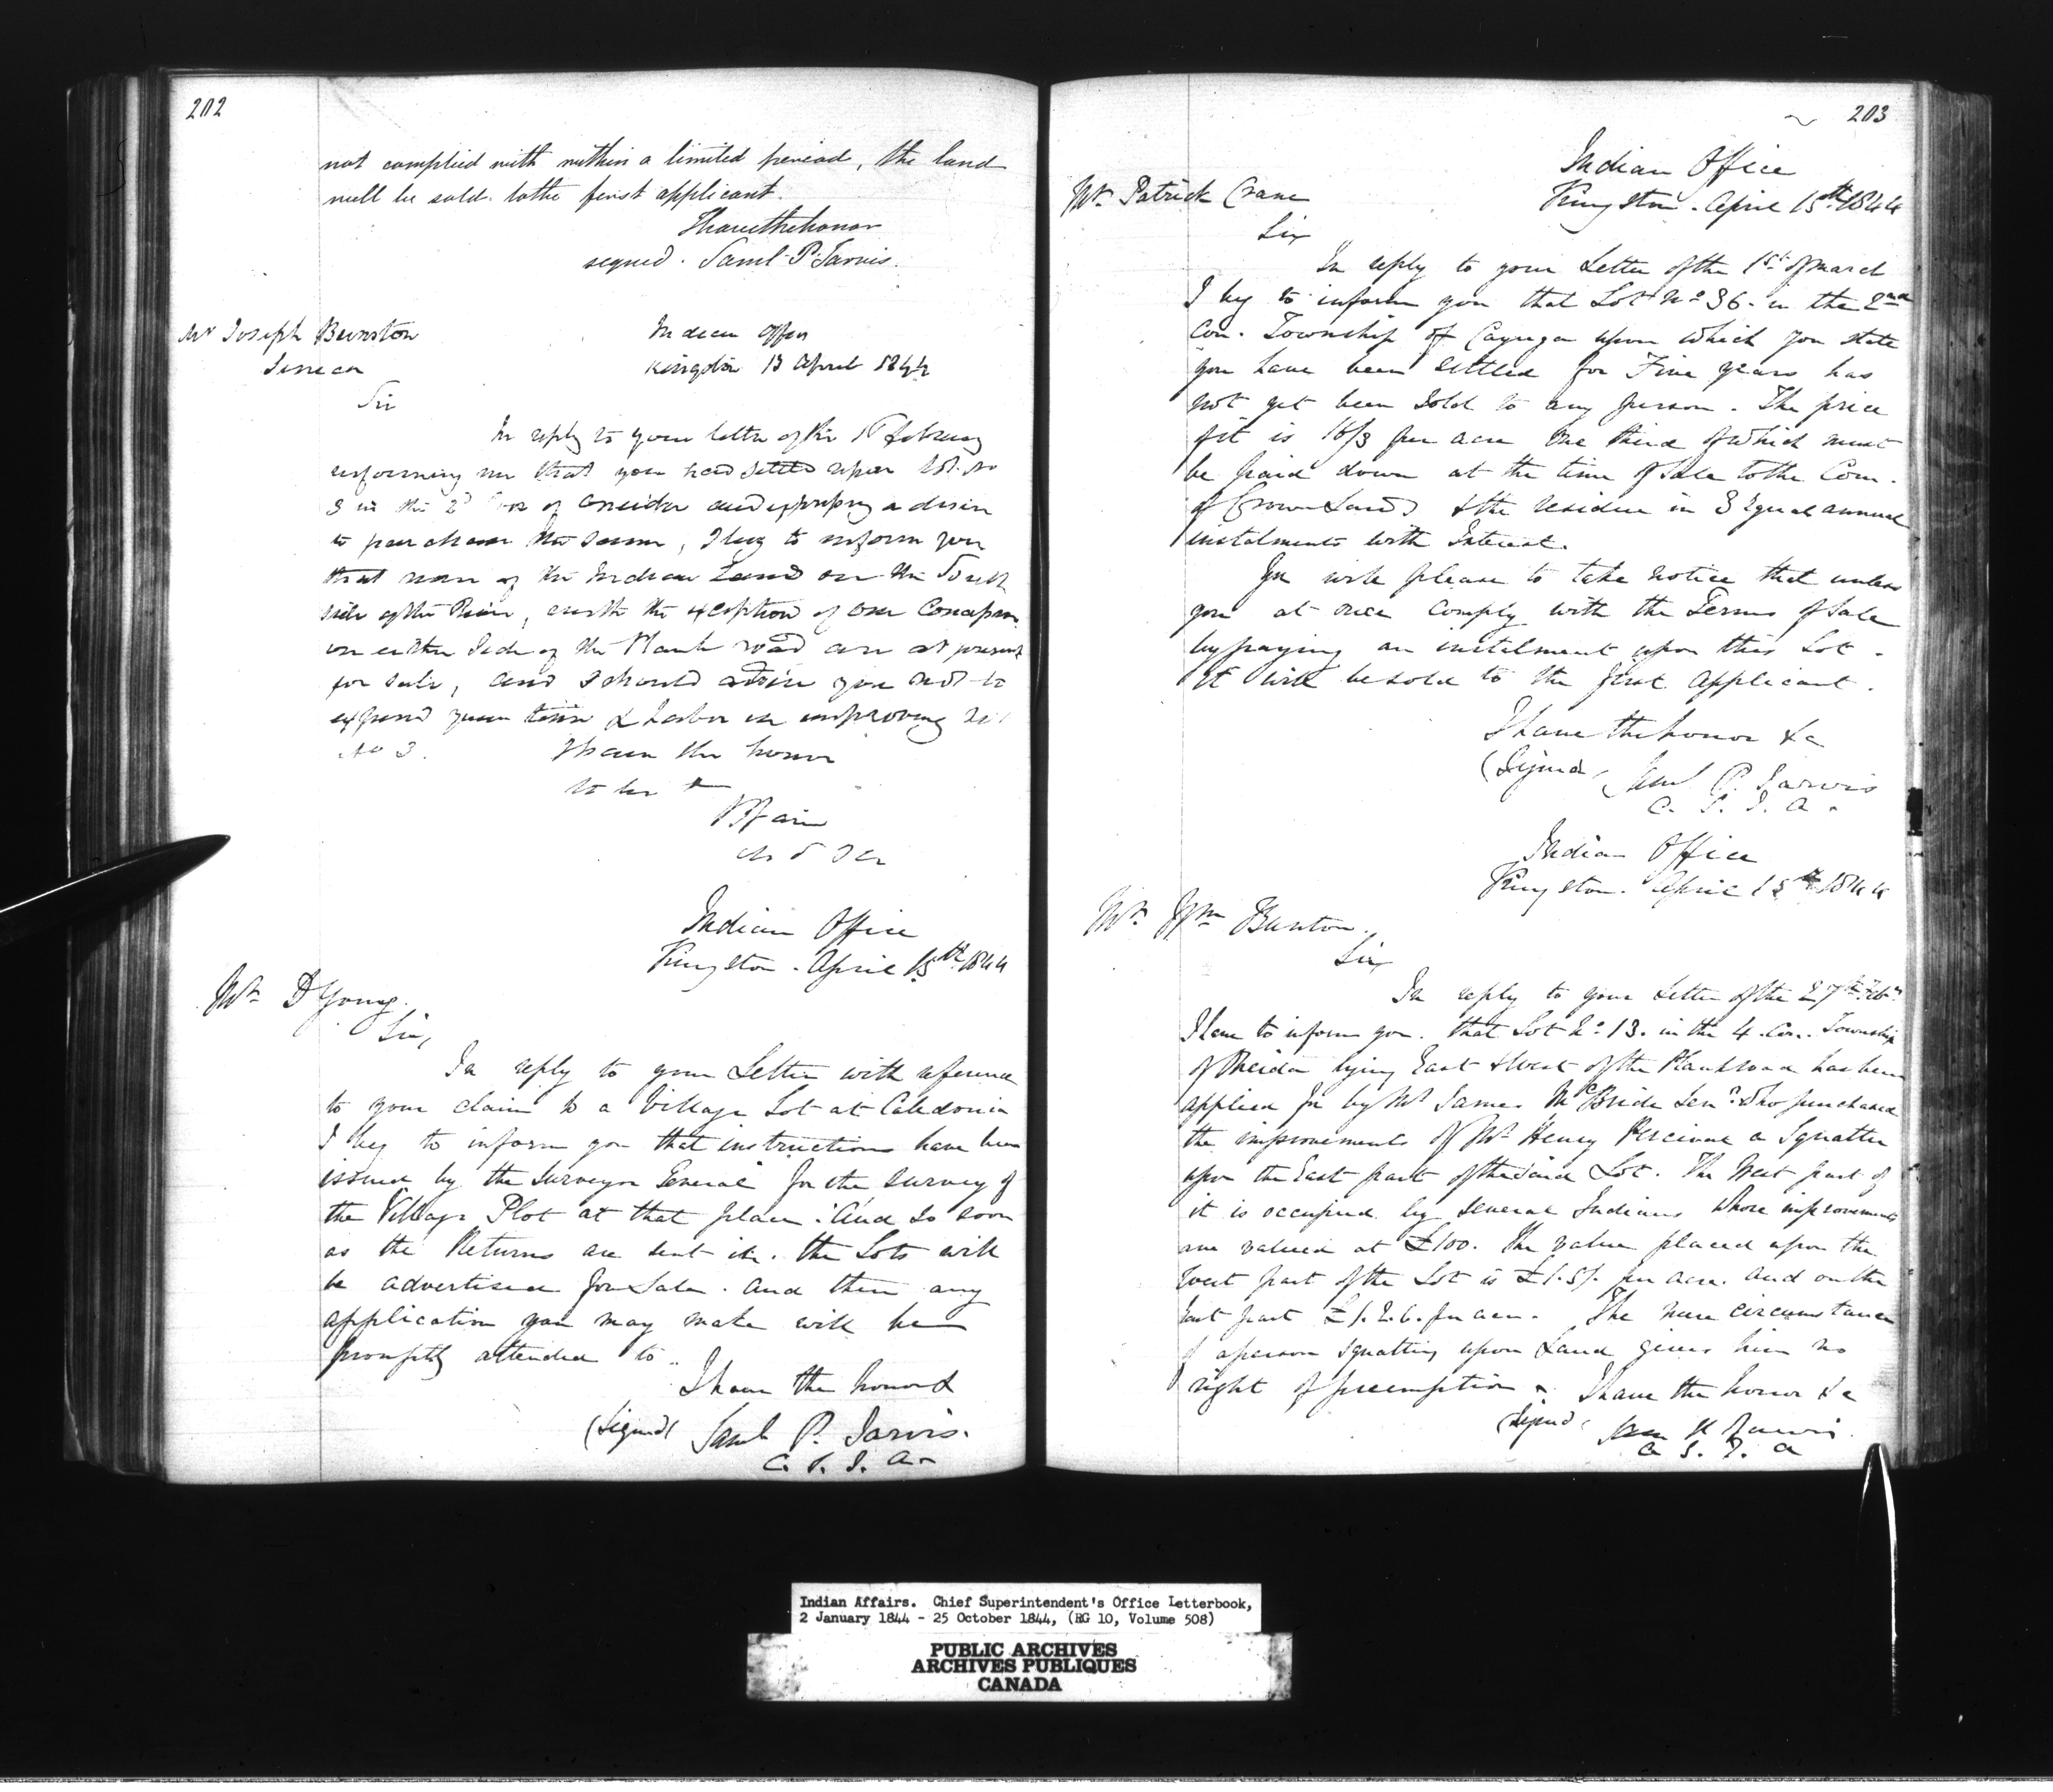 202
not complied with within a limited period, the land
will be sold to the first applicant.
I have the honor
signed. Saml. P. Jarvis.
Mr Joseph Bunston
Seneca
Indian Office
Kingston 13 April 1844
Sir
In reply to your letter of the February
informing me that you had settled upon Lot No
3 in the 2d Con of Oneida and expressing a desire
to purchase the same, I beg to inform you
that none of the Indian Land on the South
side of the River, with the exception of one Concession
on either side of the Plank road are at present
for sale, and I should advise you not to
expend your time & Labor in improving
No 3. I have the honor
to be
Indian Office
Kingston. April 15th 1844
Mr D Young.
Sir,
In reply to your Letter with reference
to your claim to a Village Lot at Caledonia
I beg to inform you that instructions have been
issued by the Surveyor General for the survey of
the Village Plot at that place. And so soon
as the Returns are sent in. the Lots will
be advertised for Sale. and then any
application you may make will be
promptly attended to.
I have the honor &
(Signed( Saml P. Jarvis.
C. S. I. A.
203
Indian Office
Kingston. April 15th 1844
Mr Patrick Crane
Sir
In reply to your Letter of the 1st of March
I beg to inform you that Lot No 36. in the 2nd
Con. Township of Cayuga upon which you state
you have been settled for Five years has
not yet been Sold to any person. The price
of it is 16/3 per acre One third of which must
be paid down at the time of Sale to the Com.
of Crown Lands & the residue in 3 Equal annual
instalments with Interest.
You will please to take notice that unless
you at once Comply with the Terms of Sale
by paying an instalment upon this Lot.
it will be sold to the first applicant.
I have the honor &c
(Signed( Saml P. Jarvis
C. S. I. A.
Indian Office
Kingston. April 15th 1844
Mr Wm Bunton.
Sir
In reply to your Letter of the 27th Feby
I have to inform you. that Lot No 13. in the 4. Con. Township
of Oneida lying East & West of the Plankroad has been
applied for by Mr James McBride Senr. Who purchased
the improvements of Mr Henry Percival a Squatter
upon the East part of the said Lot. The West part of
it is occupied by several Indians Whose improvements
are valued at £100. The value placed upon the
West part of the Lot is £1.5/. per acre. and on the
East part £1.2.6. per acre. The mere circumstance
of a person squatting upon Land gives him no
right of preemption. I have the honor &c
(Signed( Saml P Jarvis.
C S. I. A
Indian Affairs. Chief Superintendent's Office Letterbook,
2 January 1844 - 25 October 1844, (RG 10, Volume 508)
PUBLIC ARCHIVES
ARCHIVES PUBLIQUES
CANADA